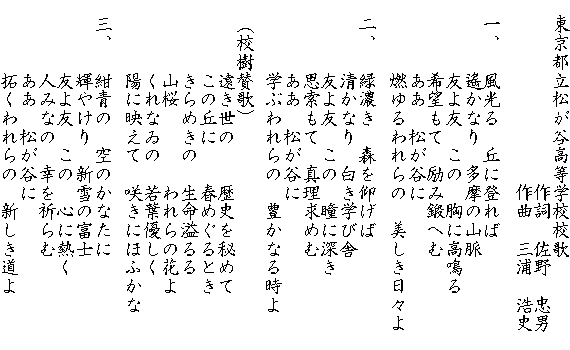 東京都立松が谷高等学校校歌
作詞　佐野　忠男
作曲　三浦　浩史
一、　風光る　丘に登れば
遙かなり　多摩の山脈
友よ友　この　胸に高鳴る
希望もて　励み鍛へむ
ああ　松が谷に
燃ゆるわれらの　美しき日々よ
二、　緑濃き　森を仰げば
清かなり　白き学び舎
友よ友　この　瞳に深き
思索もて　真理求めむ
ああ　松が谷に
学ぶわれらの　豊かなる時よ
（校樹賛歌）
遠き世の　歴史を秘めて
この丘に　春めぐるとき
きらめきの　生命溢るる
山桜　われらの花よ
くれなゐの　若葉優しく
陽に映えて　咲きにほふかな
三、　紺青の　空のかなたに
輝やけり　新雪の富士
友よ友　この　心に熱く
人みなの　幸を祈らむ
ああ　松が谷に
拓くわれらの　新しき道よ